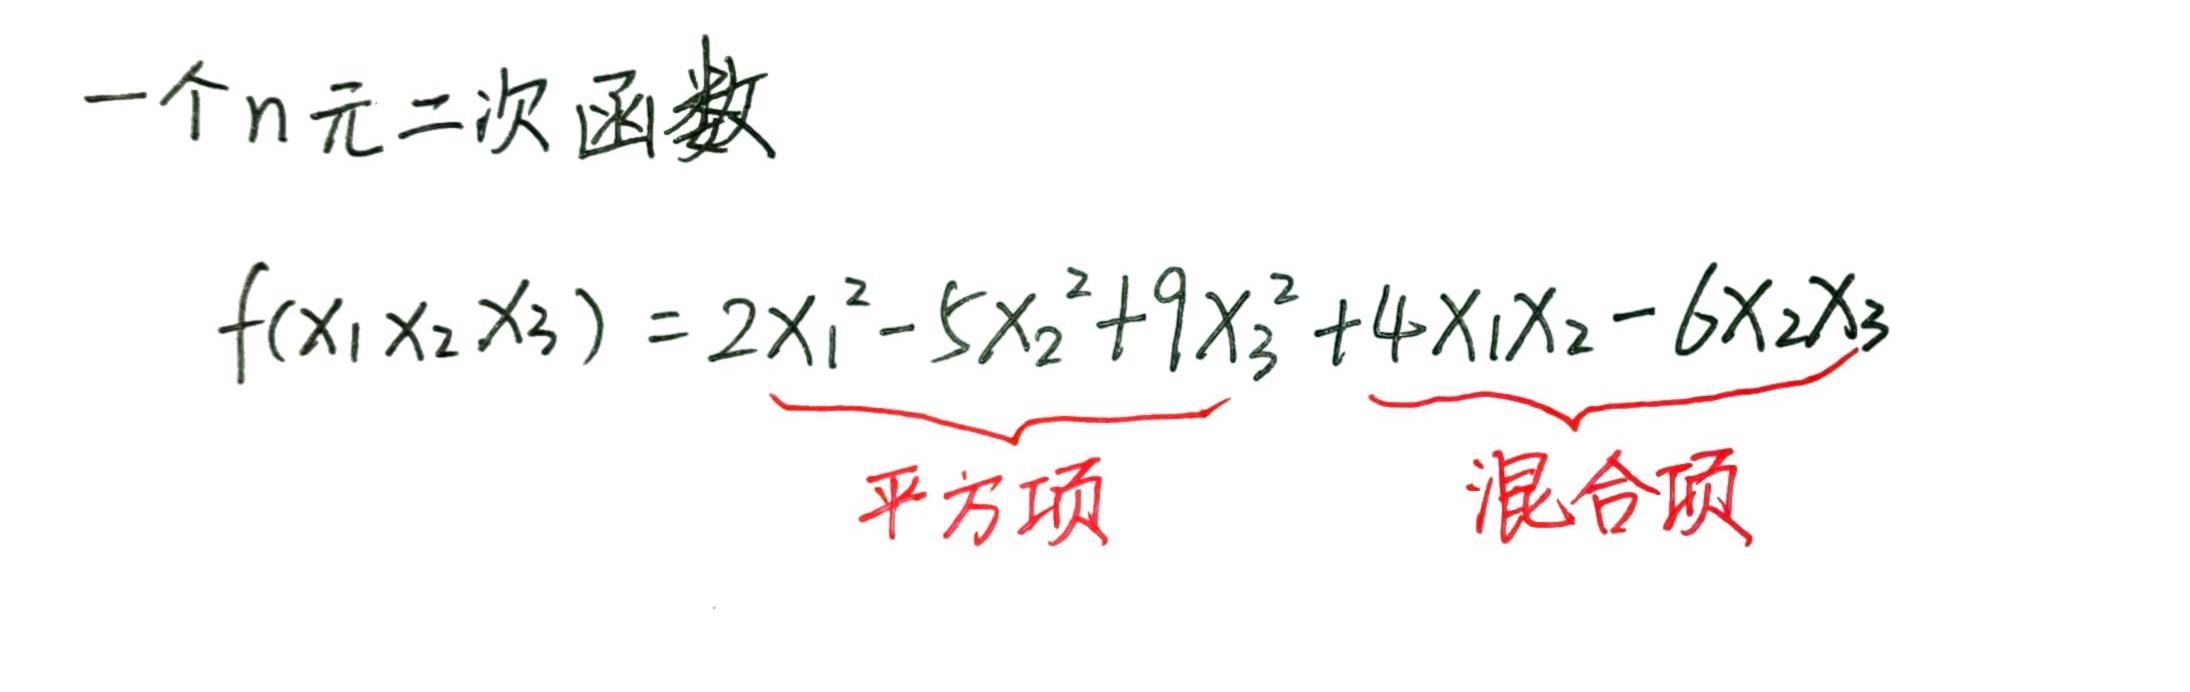 一个n元二次函数
f(x₁x₂x₃) = 2x₁² - 5x₂² + 9x₃² + 4x₁x₂ - 6x₂x₃
平方项 混合项